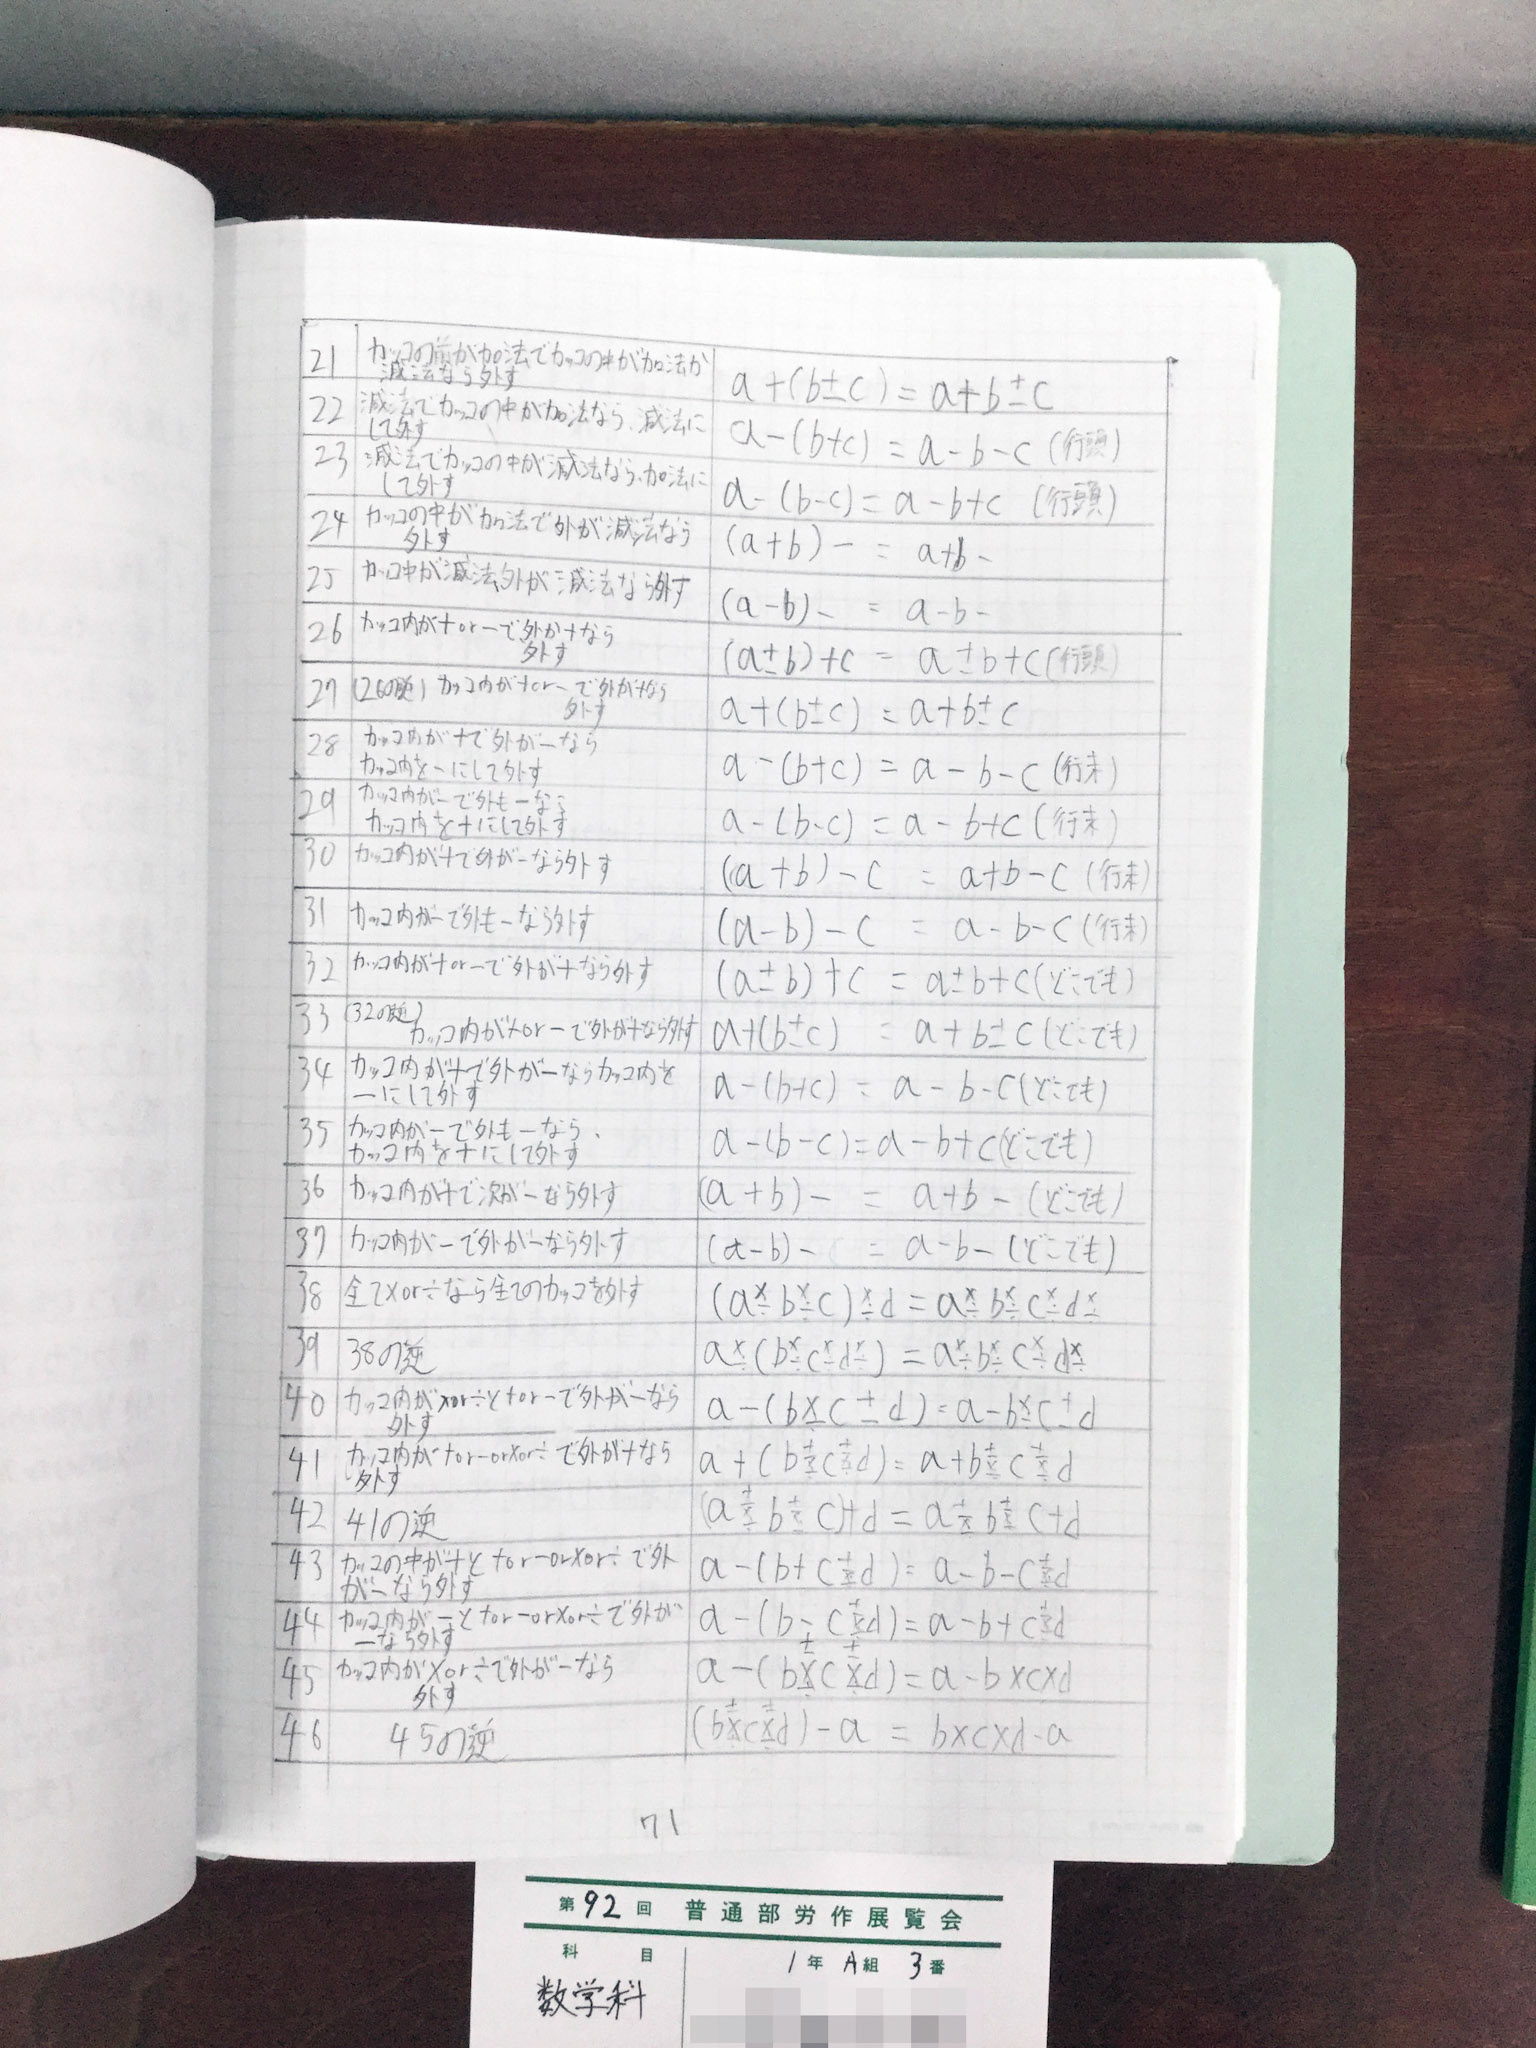 21 カッコの前が加法でカッコの中が加法か
減法なら外す
a+(b±c)=a+b±c
22 減法でカッコの中が加法なら、減法に
して外す
a-(b+c)=a-b-c(行頭)
23 減法でカッコの中が減法なら、加法に
して外す
a-(b-c)=a-b+c (行頭)
24 カッコの中が加法で外が減法なら
外す
(a+b)- = a+b-
25 カッコ中が減法、外が減法なら外す
(a-b)- = a-b-
26 カッコ内が+or-で外が+なら
外す
(a±b)+c = a±b+c(行頭)
27 (26の逆) カッコ内が+or-で外が+なら
外す
a+(b±c)=a+b±c
28 カッコ内が+で外が-なら
カッコ内を-にして外す
a-(b+c)=a-b-c(行末)
29 カッコ内が-で外も-なら
カッコ内を+にして外す
a-(b-c)=a-b+c(行末)
30 カッコ内が+で外が-なら外す
(a+b)-c = a+b-c(行末)
31 カッコ内が-で外も-なら外す
(a-b)-c = a-b-c(行末)
32 カッコ内が+or-で外が+なら外す
(a±b)+c = a±b+c(どこでも)
33 (32の逆)
カッコ内が+or-で外が+なら外す
a+(b±c) = a+b±c(どこでも)
34 カッコ内が+で外が-ならカッコ内を
-にして外す
a-(b+c) = a-b-c(どこでも)
35 カッコ内が-で外も-なら、
カッコ内を+にして外す
a-(b-c)=a-b+c(どこでも)
36 カッコ内が+で次が-なら外す
(a+b)- = a+b-(どこでも)
37 カッコ内が-で外が-なら外す
(a-b)- = a-b-(どこでも)
38 全て×or÷なら全てのカッコを外す
39 38の逆
40 カッコ内が×or÷と+or-で外が-なら
外す
41 カッコ内が+or-or×or÷で外が+なら
外す
42 41の逆
43 カッコの中が+と+or-or×or÷で外
が-なら外す
44 カッコ内が-と+or-or×or÷で外が
-なら外す
45 カッコ内が×or÷で外が-なら
外す
46 45の逆
71
第92回 普通部労作展覧会
科目 1年A組3番
数学科